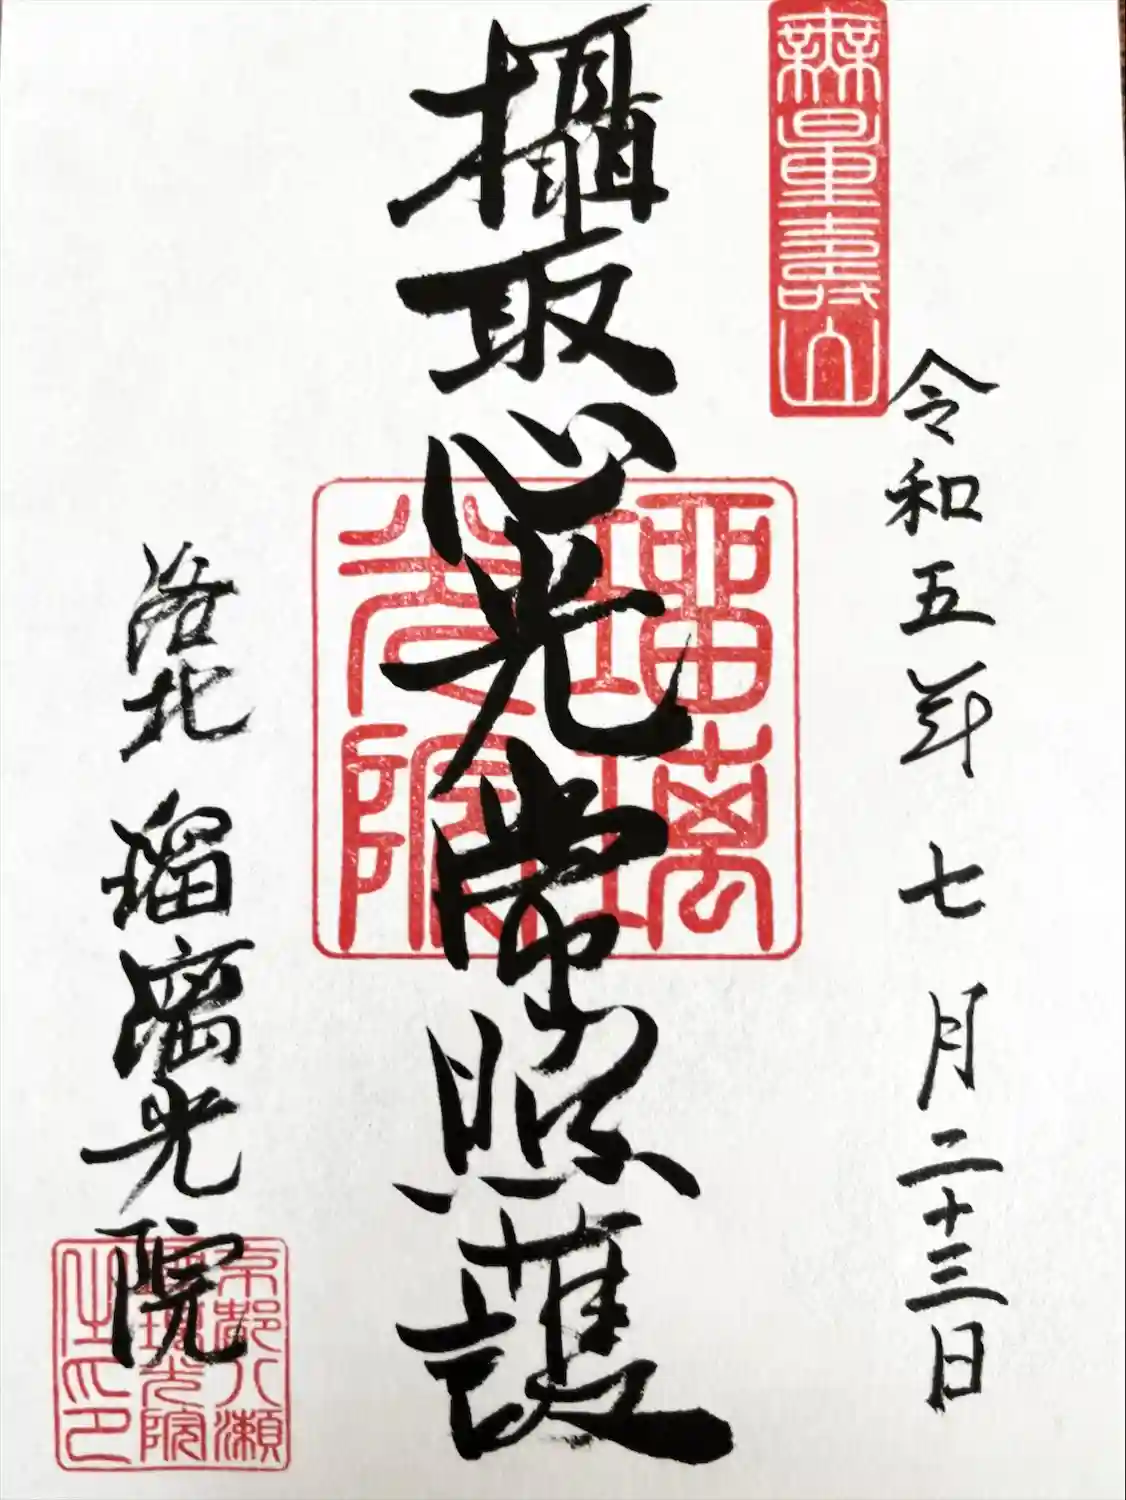 無量壽山
令和五年 七月二十三日
攝取心光常照護
瑠璃光院
洛北 瑠璃光院
京都八瀬瑠璃光院之印